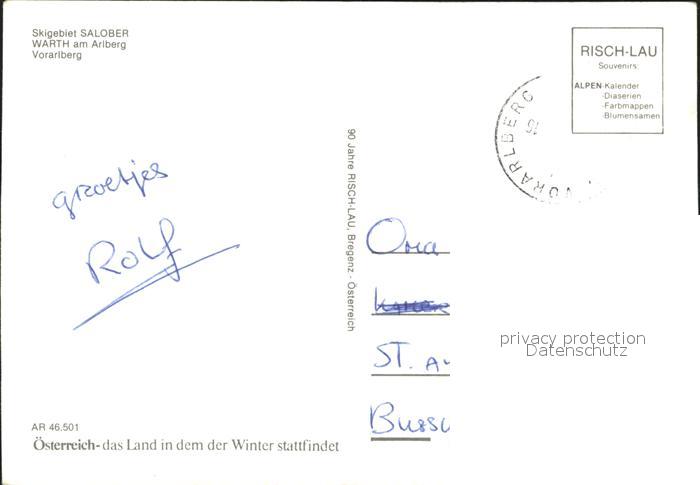 Skigebiet SALOBER
WARTH am Arlberg
Vorarlberg
RISCH-LAU
Souvenirs:
ALPEN-Kalender
-Diaserien
-Farbmappen
-Blumensamen
VORARLBERG
groetjes
Rolf
90 Jahre RISCH-LAU, Bregenz - Österreich
Oma
ST. A
Buss
privacy protection
Datenschutz
AR 46.501
Österreich- das Land in dem der Winter stattfindet